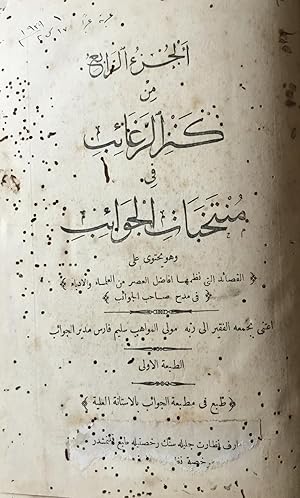 الجزء الرابع
من
كنز الرغائب
في
منتخبات الجوائب
وهو يحتوى على
﴿ القصائد التى نظمها افاضل العصر من العلماء والادباء ﴾
﴿ فى مدح صاحب الجوائب ﴾
اعتنى بجمعه الفقير الى ربه مولى المواهب سليم فارس مدير الجوائب
الطبعة الاولى
﴿ طبع فى مطبعة الجوائب بالاستانة العلية ﴾
معارف نظارت جليله سنك رخصتيله